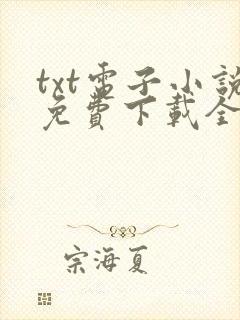 txt電子小說
免費下載全
宗海夏